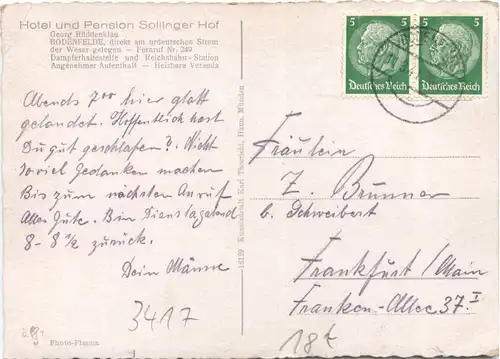 Hotel und Pension Sollinger Hof
Georg Rüddenklau
BODENFELDE, direkt am urdeutschen Strom
der Weser gelegen — Fernruf Nr. 249
Dampferhaltestelle und Reichsbahn-Station
Angenehmer Aufenthalt — Heizbare Veranda
5 5
Deutsches Reich Deutsches Reich
Abends 7 00 hier glatt
gelandet. Hoffentlich hast
Du gut geschlafen? Nicht
so viel Gedanken machen
Bis zum nächsten Anruf
Alles Gute. Bin Dienstagabend
8 - 8 ½ zurück.
Dein Männe
16129 Kunstanstalt Karl Thoericht, Hann. Münden
Fräulein
Z. Brunner
b. Schweibert
Frankfurt / Main
Franken-Allee 37 I
3417
18t
Photo-Plasma